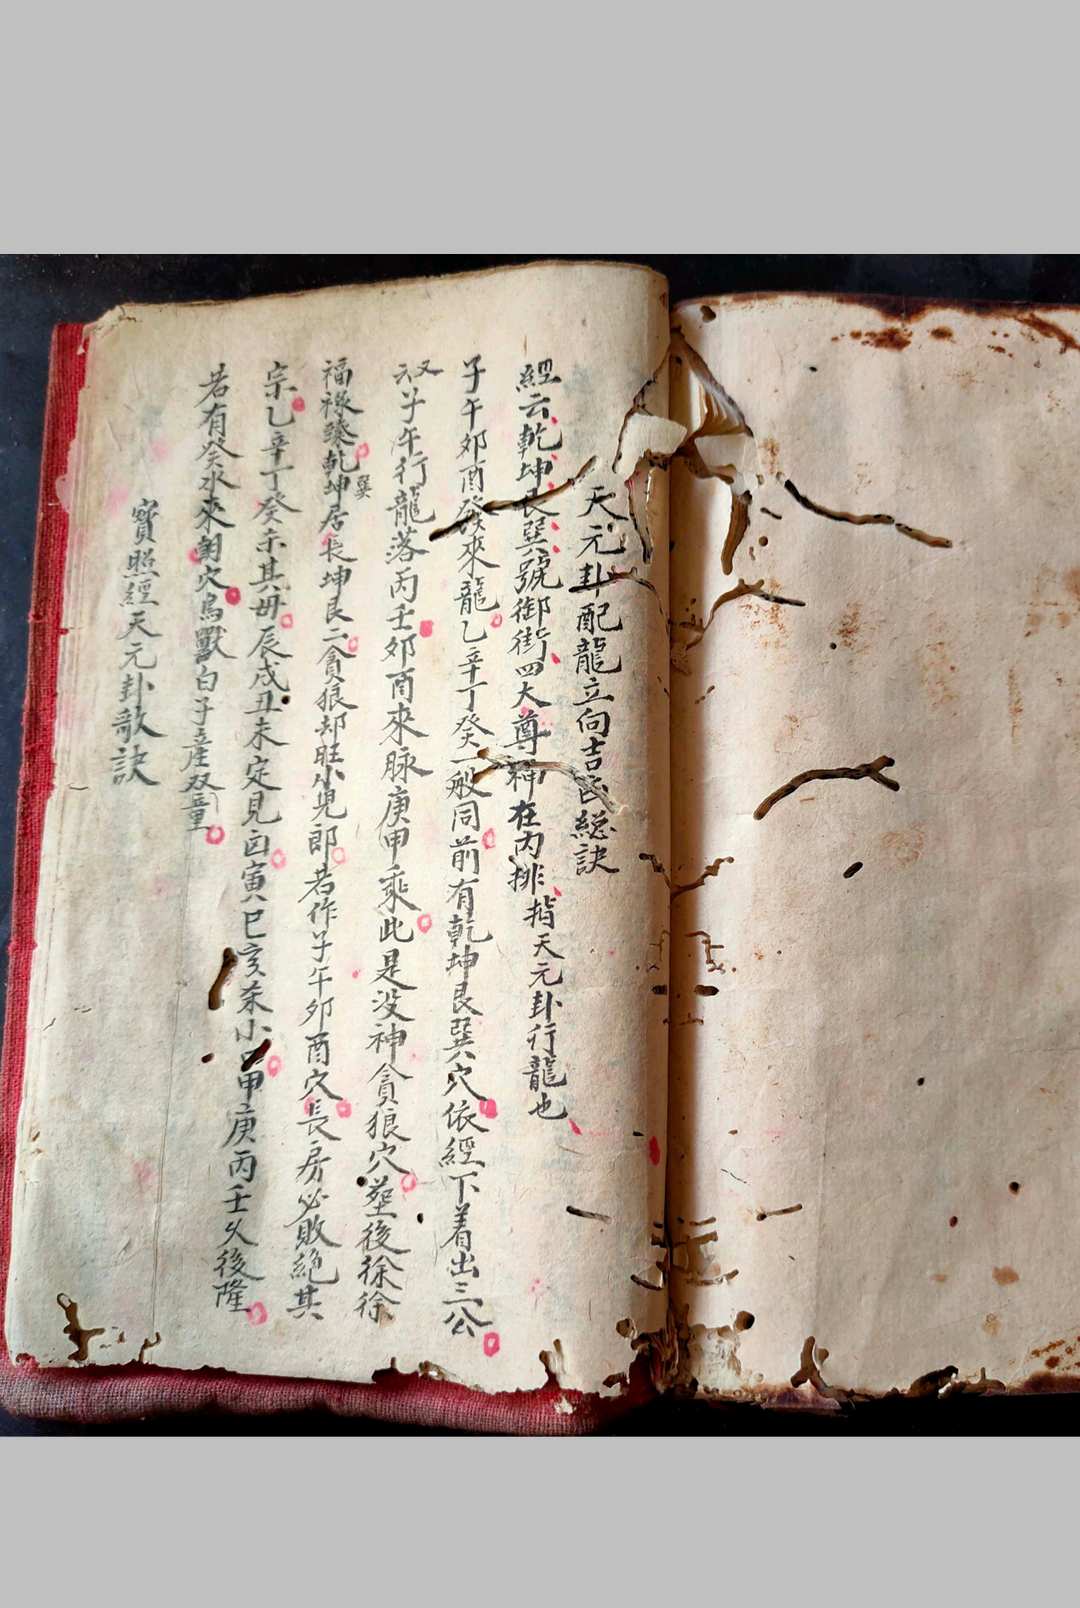 天元卦配龍立向吉凶総訣
經云乾坤艮巽號御街四大尊神在內排指天元卦行龍也
子午卯酉發來龍乙辛丁癸一般同前有乾坤艮巽穴依經下着出三公
又云子午行龍落丙壬卯酉來脉庚甲乘此是沒神貪狼穴塟後徐徐
福祿臻乾巽坤居長坤艮二貪狼却旺小兒郎若作子午卯酉穴長房必敗絕其
宗乙辛丁癸示其毋辰戌丑未定見凶寅巳亥杀小甲庚丙壬乆後隆
若有癸水來朝穴鳥獸白子產双童
寳照經天元卦歌訣